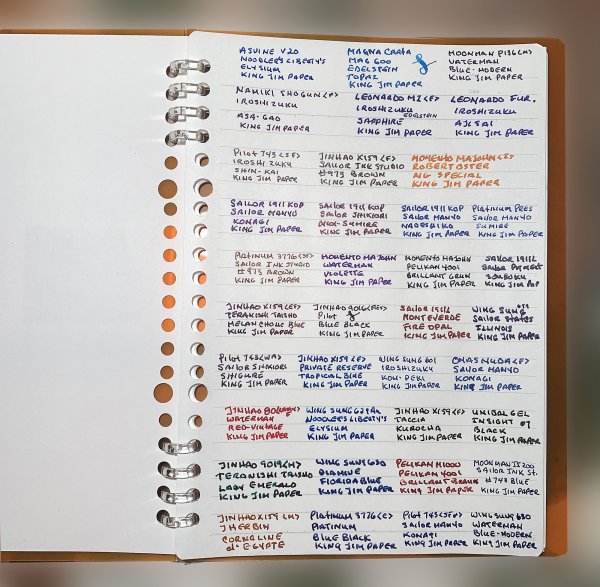 ASVINE V20
NOODLER'S LIBERTY'S
ELYSIUM
KING JIM PAPER
MAGNA CARTA
MAG 600
EDELSTEIN
TOPAZ
KING JIM PAPER
MOONMAN P136 (M)
WATERMAN
BLUE-MODERN
KING JIM PAPER
NAMIKI SHOGUN (F)
IROSHIZUKU
ASA-GAO
KING JIM PAPER
LEONARDO MZ (F)
IROSHIZUKU
EDELSTEIN
SAPPHIRE
KING JIM PAPER
LEONARDO FUR.
IROSHIZUKU
AJISAI
KING JIM PAPER
PILOT 743 (SF)
IROSHIZUKU
SHIN-KAI
KING JIM PAPER
JINHAO X159 (F)
SAILOR INK STUDIO
#973 BROWN
KING JIM PAPER
MOMENTO MAJOHN (F)
ROBERT OSTER
NG SPECIAL
KING JIM PAPER
SAILOR 1911 KOP
SAILOR MANYO
KONAGI
KING JIM PAPER
SAILOR 1911 KOP
SAILOR SHIKIORI
SUMIRE
KING JIM PAPER
SAILOR 1911 KOP
SAILOR MANYO
KING JIM PAPER
PLATINUM PRES
SAILOR MANYO
SUMIRE
KING JIM PAPER
PLATINUM 3776 (SF)
SAILOR INK STUDIO
#973 BROWN
KING JIM PAPER
MOMENTO MAJOHN
WATERMAN
VIOLETTE
KING JIM PAPER
MOMENTO MAJOHN
PELIKAN 4001
BRILLIANT GRUN
KING JIM PAPER
SAILOR 1911L
SAILOR PIGMENT
SOUBOKU
KING JIM PAP
JINHAO X159 (EF)
TERANISHI TAISHO
MELANCHOLIC BLUE
KING JIM PAPER
JINHAO 9016 (F)
PILOT
BLUE BLACK
KING JIM PAPER
SAILOR 1911L
MONTEVERDE
FIRE OPAL
KING JIM PAPER
WING SUNG
SAILOR STATES
ILLINOIS
KING JIM PAPER
PILOT 743 (WA)
SAILOR SHIKIORI
SHIGURE
KING JIM PAPER
JINHAO X159 (F)
PRIVATE RESERVE
TROPICAL BLUE
KING JIM PAPER
WING SUNG 601
IROSHIZUKU
KON-PEKI
KING JIM PAPER
SAILOR MANYO
KONAGI
KING JIM PAPER
JINHAO 80
WATERMAN
RED-VINTAGE
KING JIM PAPER
WING SUNG
NOODLER'S LIBERTY'S
ELYSIUM
KING JIM PAPER
JINHAO X159 (F)
TACCIA
KUROCHA
KING JIM PAPER
UNIBAL GEL
INSIGHT 07
BLACK
KING JIM PAPER
JINHAO 9019 (M)
TERANISHI TAISHO
LADY EMERALD
KING JIM PAPER
WING SUNG 630
DIAMINE
FLORIDA BLUE
KING JIM PAPER
PELIKAN M1000
PELIKAN 4001
BRILLIANT BRAUN
KING JIM PAPER
MOONMAN
SAILOR INK ST.
#743 BLUE
KING JIM PAPER
JINHAO X159 (M)
J HERBIN
CORNALINE
d'EGYPTE
PLATINUM 3776 (C)
PLATINUM
BLUE BLACK
KING JIM PAPER
PILOT 743 (SF)
SAILOR MANYO
KONAGI
KING JIM PAPER
WING SUNG 630
WATERMAN
BLUE-MODERN
KING JIM PAPER